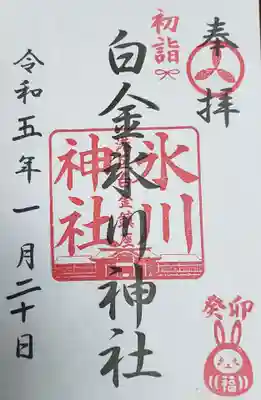 奉拝
初詣
白金氷川神社
氷川
神社
令和五年一月二十日
癸卯
福